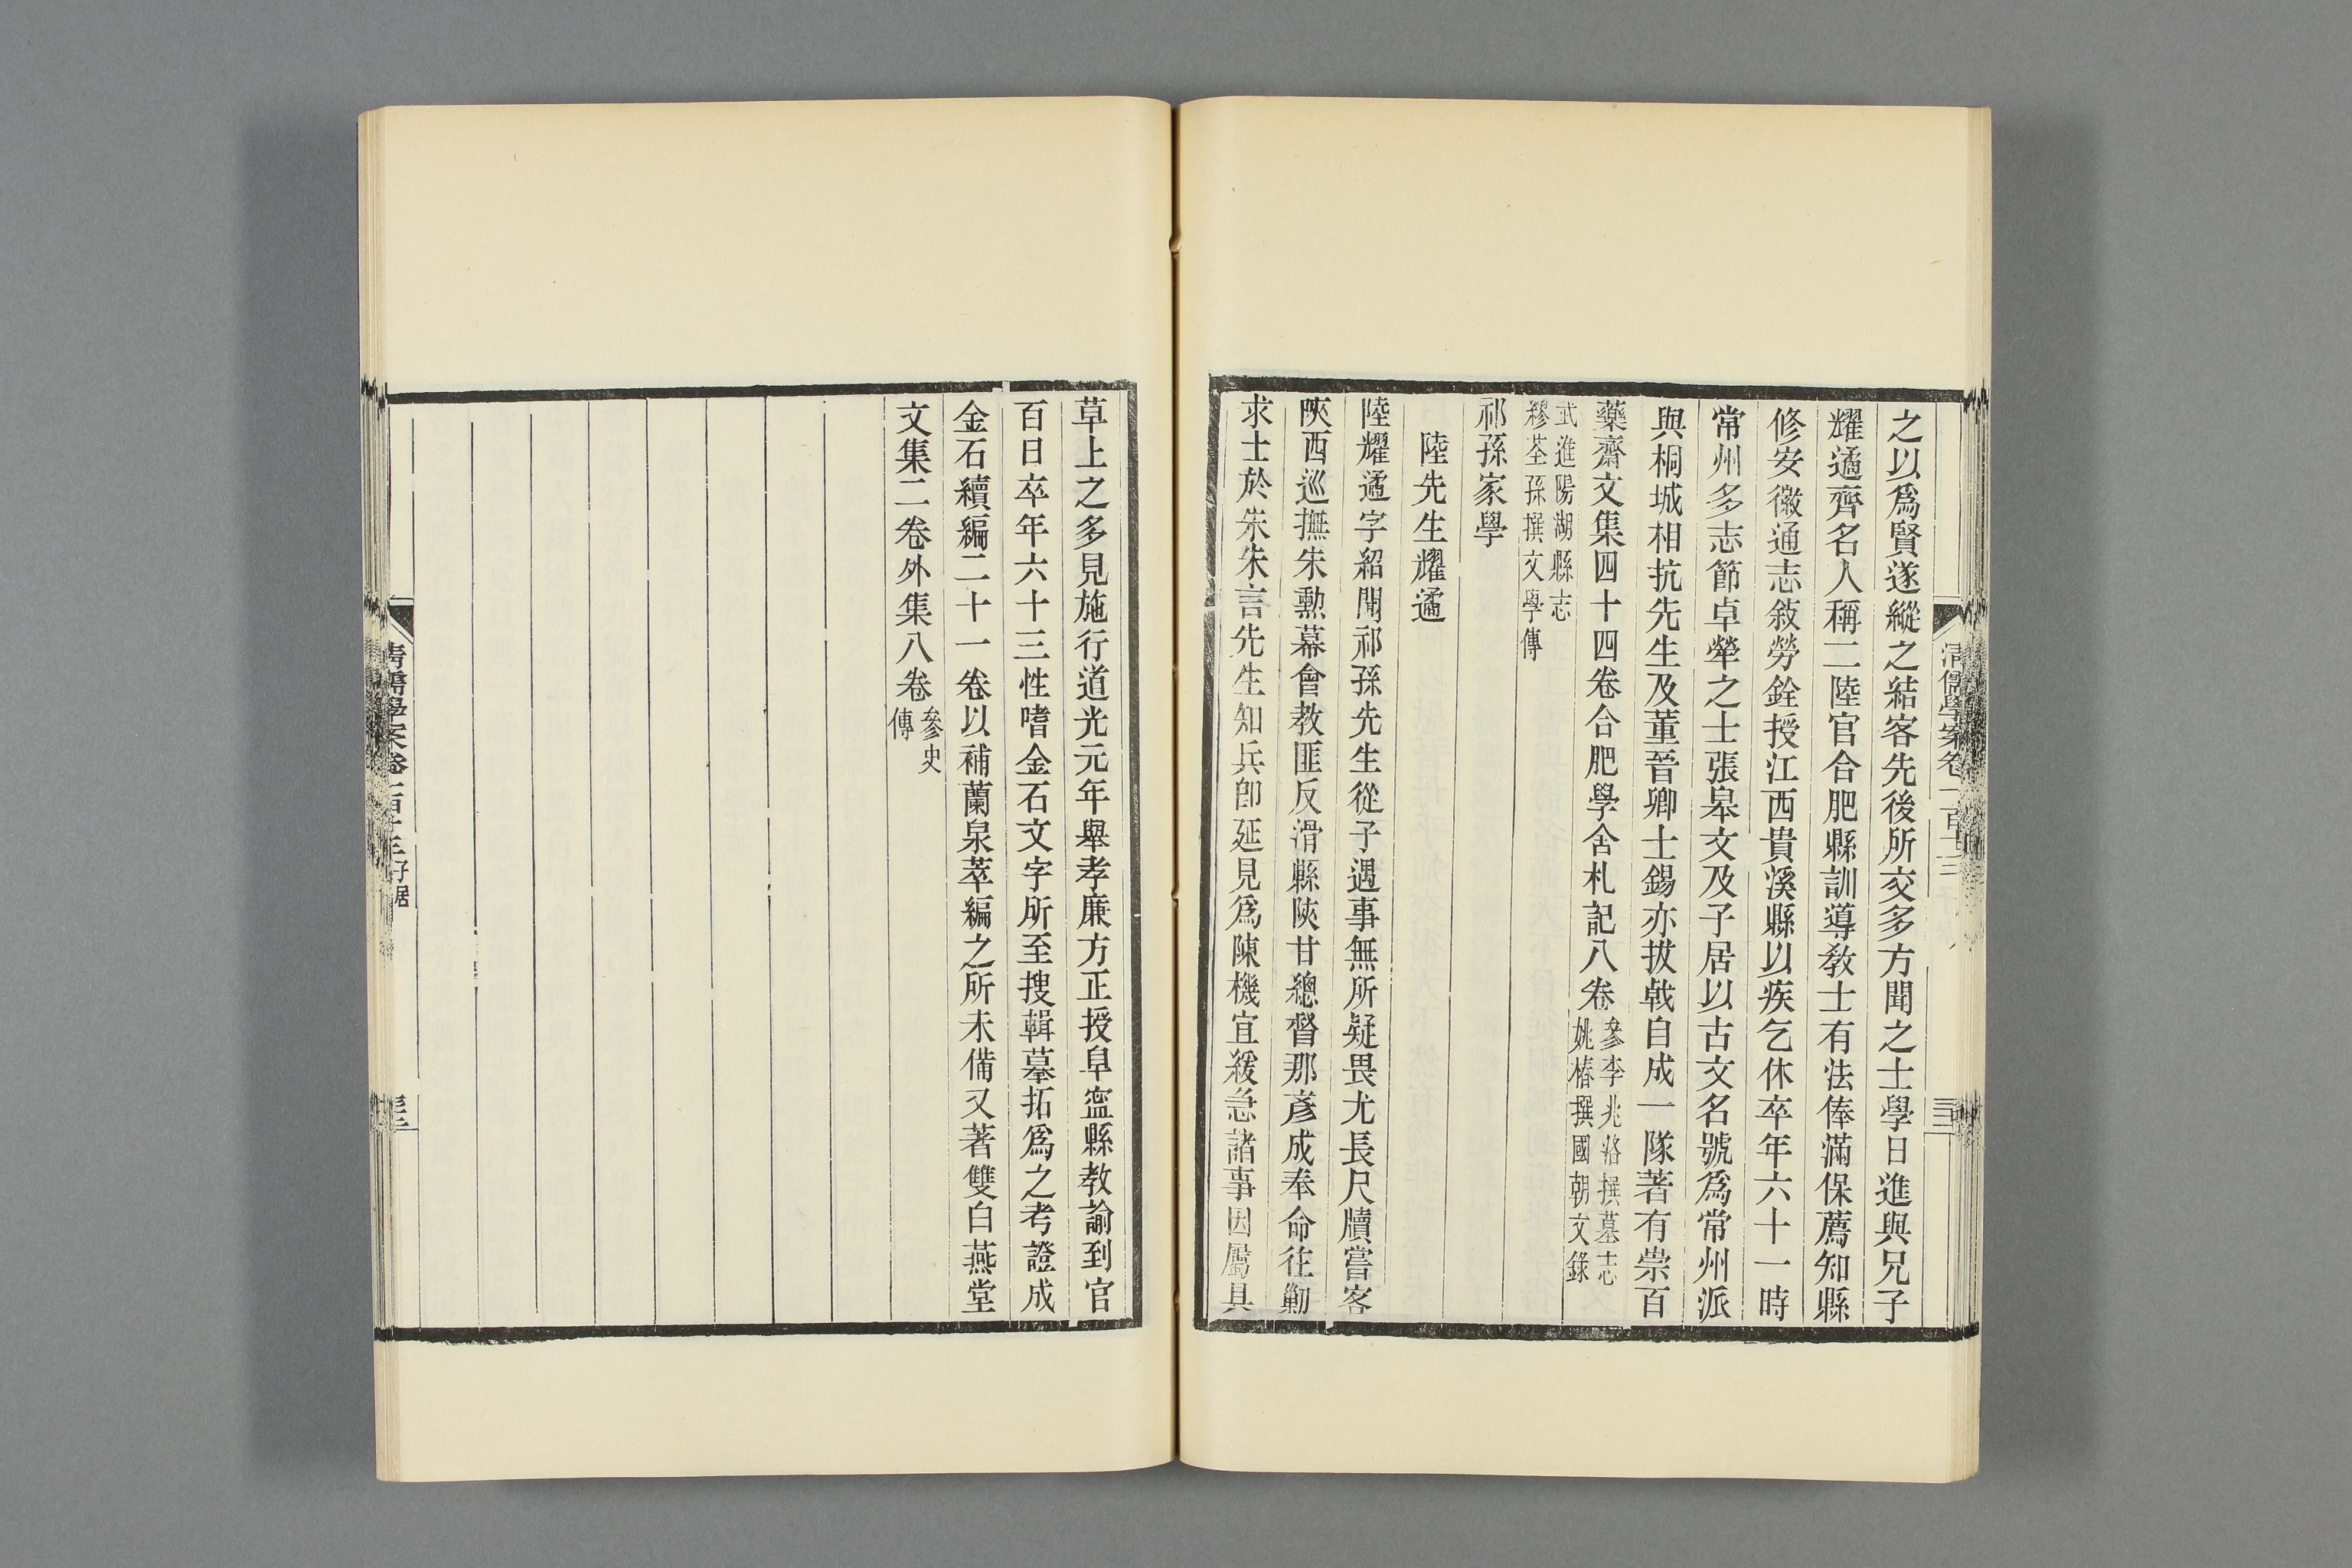 之以爲賢遂縱之結客先後所交多方聞之士學日進與兄子
耀遹齊名人稱二陸官合肥縣訓導教士有法俸滿保薦知縣
修安徽通志敘勞銓授江西貴溪縣以疾乞休卒年六十一時
常州多志節卓犖之士張皋文及子居以古文名號爲常州派
與桐城相抗先生及董晉卿士錫亦拔戟自成一隊著有崇百
藥齋文集四十四卷合肥學舍札記八卷
參李兆洛撰墓志
姚椿撰國朝文錄
武進陽湖縣志
繆荃孫撰文學傳
祁孫家學
陸先生耀遹
陸耀遹字紹聞祁孫先生從子遇事無所疑畏尤長尺牘嘗客
陝西巡撫朱勳幕會教匪反滑縣陝甘總督那彥成奉命往勦
求士於朱朱言先生知兵卽延見爲陳機宜緩急諸事因屬具
清儒學案卷一百十三
草上之多見施行道光元年舉孝廉方正授阜寧縣教諭到官
百日卒年六十三性嗜金石文字所至搜輯摹拓爲之考證成
金石續編二十一卷以補蘭泉萃編之所未備又著雙白燕堂
文集二卷外集八卷
參史
傳
清儒學案卷一百十三 子居